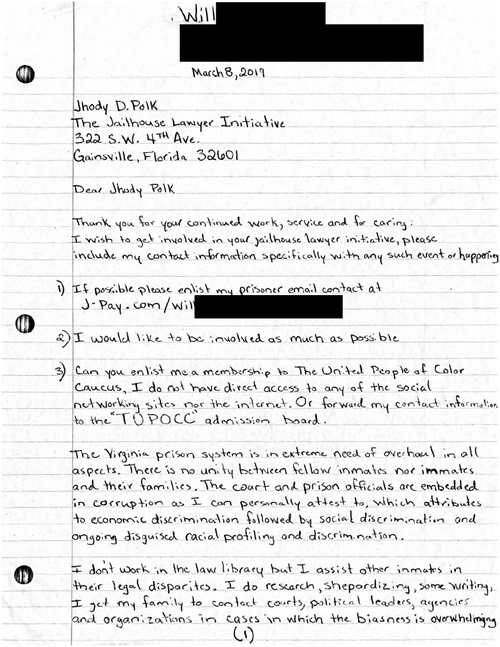 . Will
March 8, 2019
Jhody D. Polk
The Jailhouse Lawyer Initiative
322 S.W. 4TH Ave.
Gainsville, Florida 32601
Dear Jhody Polk
Thank you for your continued work, service and for caring.
I wish to get involved in your jailhouse lawyer initiative, please
include my contact information specifically with any such event or happening
1) If possible please enlist my prisoner email contact at
J-Pay.com/Wil
2) I would like to be involved as much as possible
3) Can you enlist me a membership to The United People of Color
Caucus, I do not have direct access to any of the social
networking sites nor the internet. Or forward my contact information
to the "TUPOCC" admission board.
The Virginia prison system is in extreme need of overhaul in all
aspects. There is no unity between fellow inmates nor inmates
and their families. The court and prison officials are embedded
in corruption as I can personally attest to, which attributes
to economic discrimination followed by social discrimination and
ongoing disguised racial profiling and discrimination.
I don't work in the law library but I assist other inmates in
their legal disparites. I do research, shepardizing, some writing,
I get my family to contact courts, political leaders, agencies
and organizations in cases in which the biasness is overwhelming
(1)